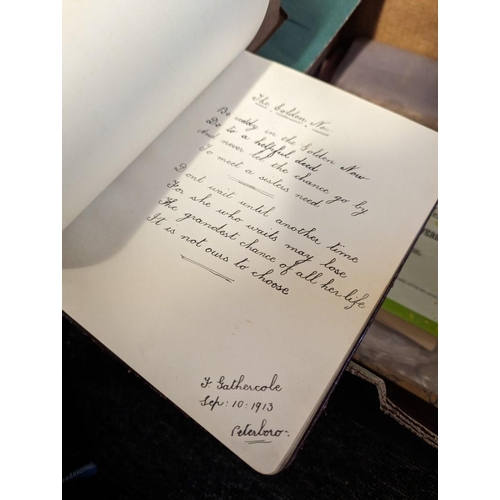 The Golden Now.
Be ready in the Golden Now
Do to a helpful deed
And never let the chance go by
To meet a sisters need
Dont wait until another time
For she who waits may lose
The grandest chance of all her life
It is not ours to choose
F Gathercole
Sep: 10: 1913
Peterboro-.